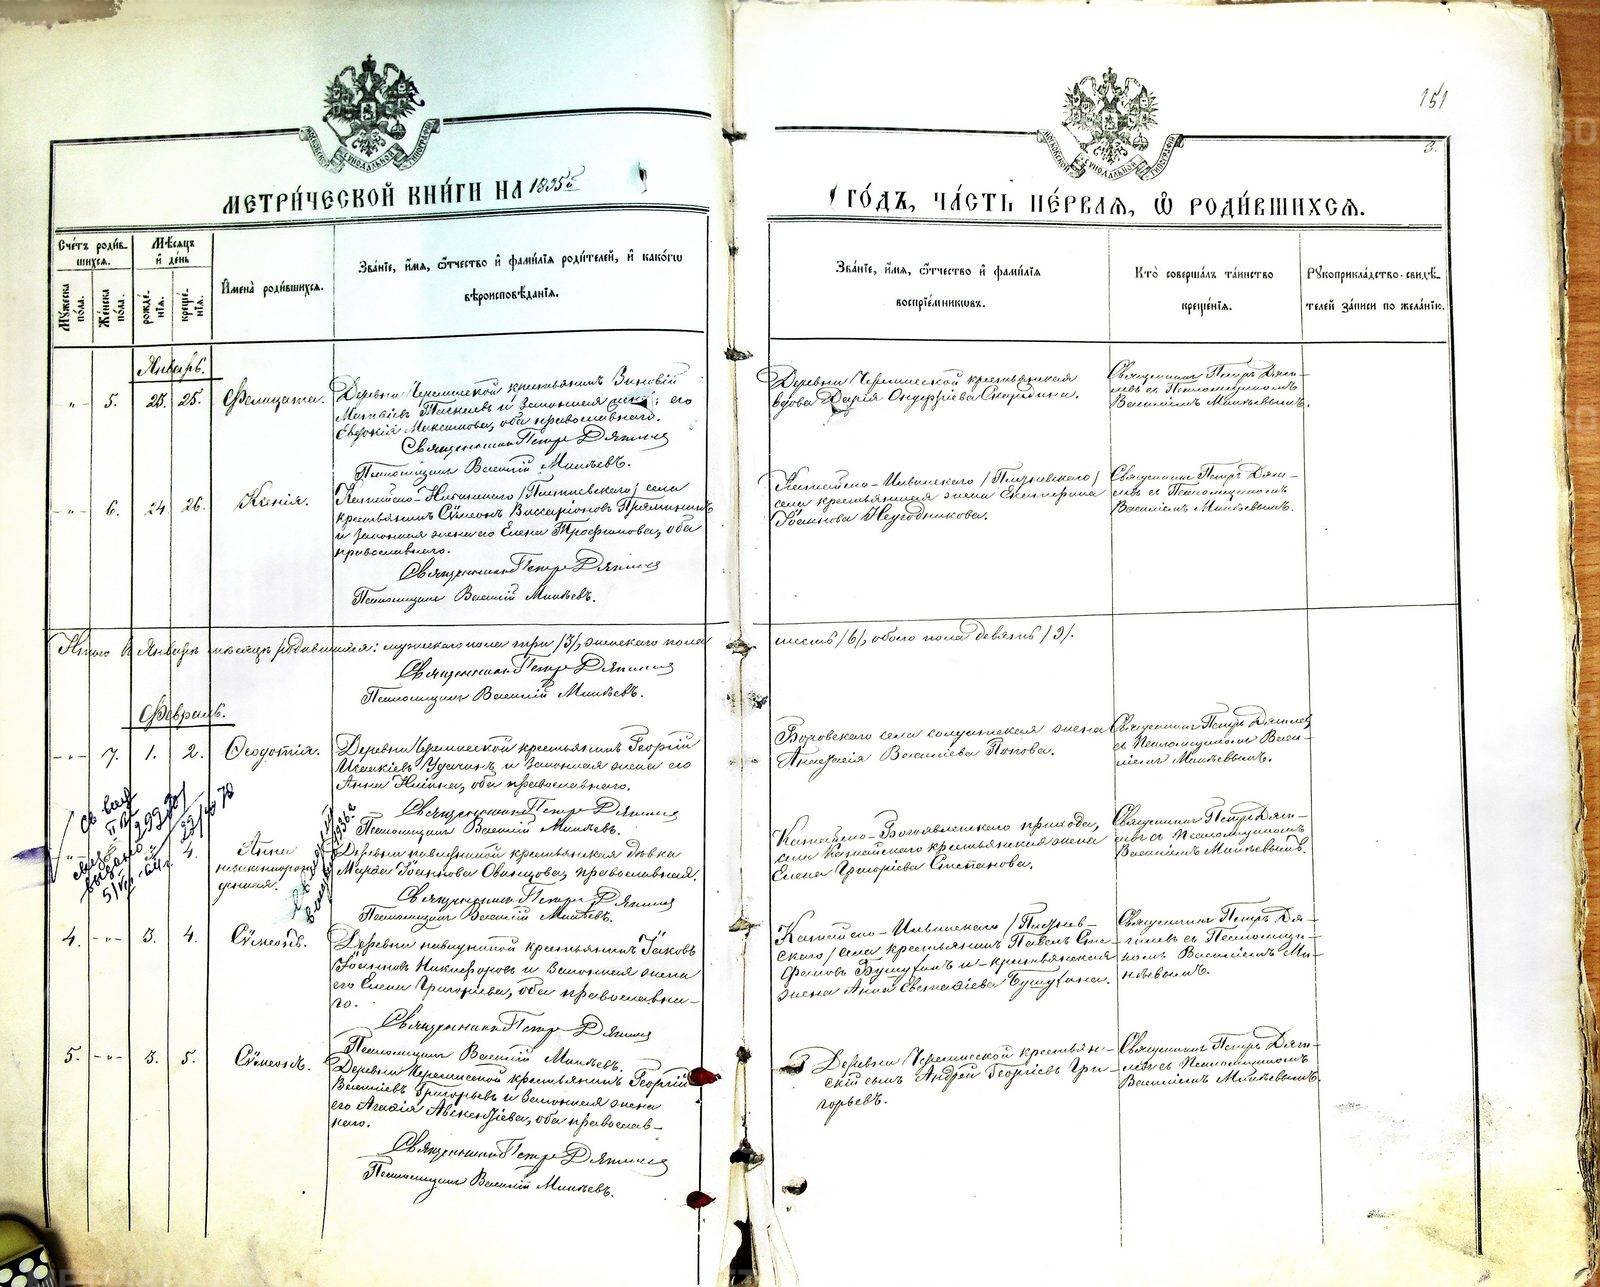 151
3.
МОСКОВСКОЙ СѴНОДАЛЬНОЙ ТИПОГРАФІИ
МОСКОВСКОЙ СѴНОДАЛЬНОЙ ТИПОГРАФІИ
МЕТРИ́ЧЕСКОЙ КНИ́ГИ НА 1895й
ГО́ДЪ, ЧА́СТЬ ПЕ́РВАЯ, Ѽ РОДИ́ВШИХСЯ.
Сче́тъ роди́в-
шихся.
Му́жеска по́ла.
Же́нска по́ла.
Мѣ́сяцъ
и҆ де́нь
рожде́-
нїя.
креще́-
нїя.
И҆мена̀ роди́вшихся.
Зва́нїе, и҆́мя, ѻ҆́тчество и҆ фами́лїя роди́телей, и҆ како́гѡ
вѣроисповѣ́данїя.
Зва́нїе, и҆́мя, ѻ҆́тчество и҆ фами́лїя
воспрїе́мниковъ.
Кто̀ соверша́лъ та́инство
креще́нїя.
Рукоприкла́дство свидѣ́-
телей за́писи по жела́нїю.
Январь.
" 5. 25. 25. Фелицата.
Деревни Черемисской крестьянинъ Зиновій
Матвѣевъ и законная его
Евдокія Максимова, оба православнаго.
Священникъ Петръ Дягилев
Псаломщикъ Василій Минѣевъ.
Деревни Черемисской крестьянская
вдова Дарія Онуфріева
Священникъ Петръ Дяги-
левъ съ Псаломщикомъ
Василіемъ Минѣевымъ.
" 6. 24 26. Ксенія.
села
крестьянинъ Сѵмеонъ Виссаріоновъ
и законная жена его Елена Трофимова, оба
православнаго.
Священникъ Петръ Дягилев
Псаломщикъ Василій Минѣевъ.
Катайско-Ильинскаго
села крестьянская жена Екатерина
Іоаннова Неугодникова.
Священникъ Петръ Дяги-
левъ съ Псаломщикомъ
Василіемъ Минѣевымъ.
Итого въ Январѣ мѣсяцѣ родившихся: мужескаго пола три /3/, женскаго пола
шесть /6/, обоего пола девять /9/.
Священникъ Петръ Дягилев
Псаломщикъ Василій Минѣевъ.
Февраль.
" 7. 1. 2. Ѳеодотія.
Деревни Черемисской крестьянинъ Георгій
Исаакіевъ Удачинъ и законная жена его
Анна Нилова, оба православнаго.
Священникъ Петръ Дягилев
Псаломщикъ Василій Минѣевъ.
Боровскаго села солдатская жена
Анастасія Василіева Попова.
Священникъ Петръ Дягилев
съ Псаломщикомъ Васи-
ліемъ Минѣевымъ.
4. Анна
незаконнорож-
денная.
Деревни крестьянская дѣвка
Марѳа Іоаннова Овчинникова, православная.
Священникъ Петръ Дягилев
Псаломщикъ Василій Минѣевъ.
Катайско-Богоявленскаго прихода,
села Катайскаго крестьянская жена
Елена Григоріева Степанова.
Священникъ Петръ Дяги-
левъ съ Псаломщикомъ
Василіемъ Минѣевымъ.
4. " 3. 4. Сѵмеонъ.
Деревни крестьянинъ Іаковъ
Іоанновъ Никифоровъ и законная жена
его Елена Григоріева, оба православна-
го.
Священникъ Петръ Дягилев
Псаломщикъ Василій Минѣевъ.
Катайско-Ильинскаго
скаго/ села крестьянинъ Павелъ Сте-
фановъ и крестьянская
жена Анна Евстаѳіева
Священникъ Петръ Дя-
гилевъ съ Псаломщи-
комъ Василіемъ Ми-
нѣевымъ.
5. " 3. 5. Сѵмеонъ.
Деревни Черемисской крестьянинъ Георгій
Василіевъ Григорьевъ и законная жена
его Агаѳія Авксентіева, оба православ-
наго.
Священникъ Петръ Дягилев
Псаломщикъ Василій Минѣевъ.
Деревни Черемисской крестьян-
скій сынъ Андрей Георгіевъ Гри-
горьевъ.
Священникъ Петръ Дяги-
левъ съ Псаломщикомъ
Василіемъ Минѣевымъ.